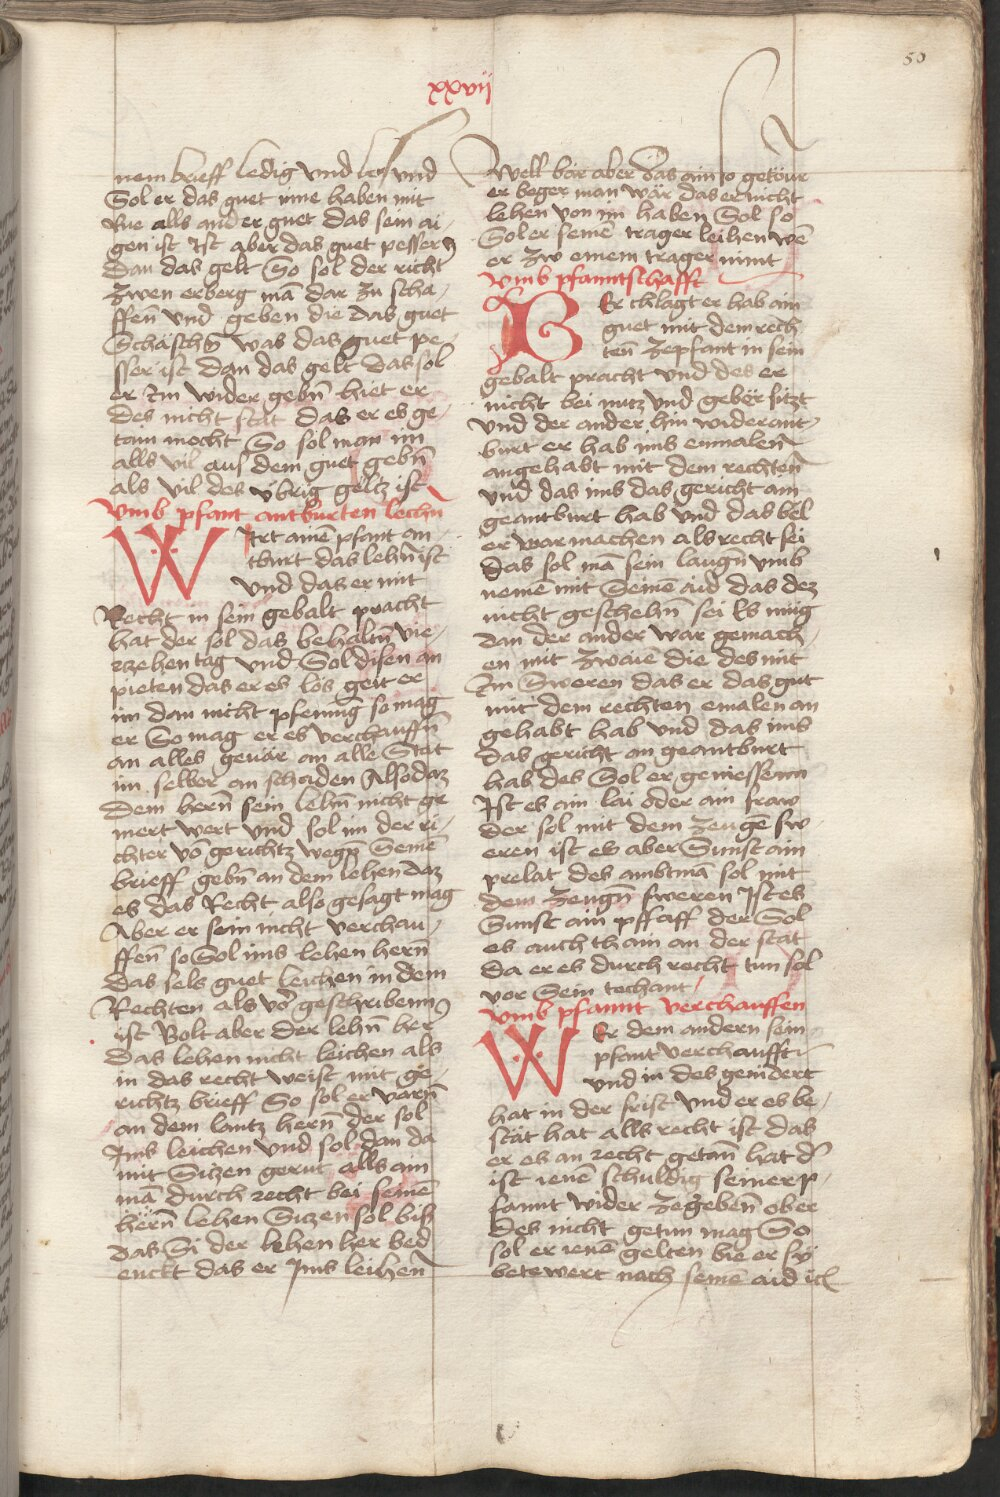 50
xxvii
nem brieff ledig vnd les vnd
Sol er das guet inne haben mit
Nüe alls ander guet das sein ai-
gen ist Ist aber das guet pesser
Dan das gelt So sol der richt
zwen erberg mā dar zu scha-
ffen̄ vnd geben die das guet
Schäschn̄ was das guet pe-
sser ist dan das gelt das sol
er Im wider gebn̄ hiet er
des nicht stat das er es ge-
tain mocht So sol man im
alls vil aus dem guet gebn̄
als vil des vbrig geltz ist
Vmb pfant antburten lechn̄
Wrt ainē pfant an-
tburt das lehn̄ ist
vnd das er mit
Recht in sein gebalt pracht
hat der sol das behaltn̄ vie-
rzehen tag vnd Sol disen an
pieten das er es lös geit er
im dan nicht pfening so mag
er So mag er es verchauffn̄
an alles geuär an alle Stat
im selber an schaden Also daz
Dem hern̄ sein lehn̄ nicht ge
mert wert vnd sol im der ri-
chter vō gerichtz wegn̄ Seinē
brieff gebn̄ an dem lehen daz
es das Recht also gesagt mag
Aber er sein nicht verchau-
ffen̄ so Sol ims lehen hern̄
das sels guet leichen in dem
Rechten als vor geschribenn
ist Wolt aber der lehn̄ her
das lehen nicht leichen als
in das recht weist mit ge-
richtz brieff So sol er varn̄
an dem lantz hern̄ der sol
Ims leichen vnd sol dan da
mit Sitzen gerut alls ain
mā durch recht bei seinē
hern̄ lehen Sitzen sol biß
das Si der lehen her bed
enckt das er Ims leihen
Well bär aber das ain so getöur
er beger man wär das er nicht
lehen von im haben Sol so
Sol er seinē trager leihen wē
er zw einem trager nimt
Vmb pfanntschafft
Er chlagt er hab ain
guet mit dem rech
ten̄ zepfant in sein
gebalt pracht vnd des er
nicht bei nutz vnd geber sitzt
vnd der ander hin widerant-
burt er hab ims enmalen
angehabt mit dem rechten
vnd das ims das gericht ain
geantburt hab vnd das bel
er war machen als recht sei
Das sol mā sein laugn̄ vmb
nemē mit Seinē aid das dez
nicht geschehn̄ sei Es müg
dan der ander war gemach-
en mit zwaiē die des mit
Im Sweren das er das gut
mit dem rechten emalen an
gehabt hab vnd das ims
das gericht an geantburt
hab des Sol er geniessenn
Ist es ain lai oder ain fraw
der sol mit dem zeugē sw-
eren ist es aber Sunst ain
prelat des ambtmā sol mit
dem zeugn̄ sweren Ist es
Sunst ain pffaff der Sol
es auch tham an der stat
da er es durch recht tun sol
vor Sein techant
Vmb pfannt verchauffen
Wer dem andern sein
pfant verchaufft
vnd in des gemdert
hat in der frist vnd er es be-
stät hat alls recht ist das
er es an recht getan̄ hat d'
ist ienē schuldig seiner p-
fannt wider zegeben̄ ober
des nicht getun mag So
sol er ienē gelten bie er sy
betewert nach seinē aid ich